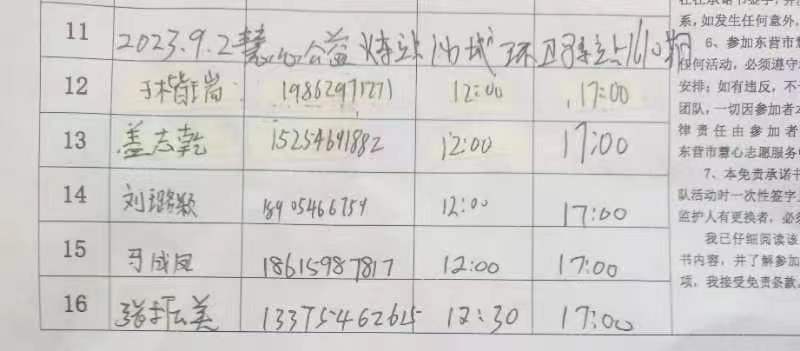 11 2023.9.2慧心公益
12 19862971271 12:00 17:00
13 盖志乾 15254691882 12:00 17:00
14 刘璐颖 12:00 17:00
15 马成凤 18615987817 12:00 17:00
16 美 13375462615 12:30 17:00
系,如发生任何意外,
6、参加东营市慧
任何活动,必须遵守
安排;如有违反,不
团队,一切因参加者
律责任由参加者
东营市慧心志愿服务
7、本免责承诺书
队活动时一次性签字,
监护人有更换者,必
我已仔细阅读该
书内容,并了解参加
项,我接受免责条款。